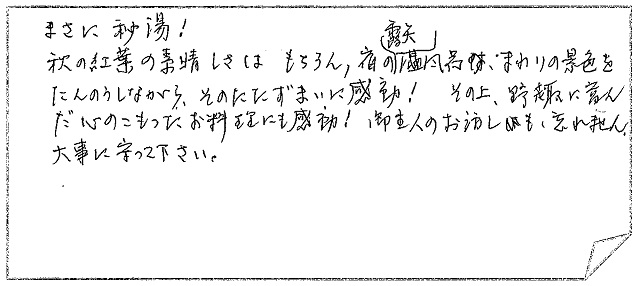 まさに秘湯!
秋の紅葉の素晴しさは もちろん, 宿の露天風呂も、まわりの景色を
たんのうしながら、そのたたずまいに感動! その上、野趣に富ん
だ心のこもったお料理にも感動! 御主人のお話しも忘れません。
大事に守って下さい。